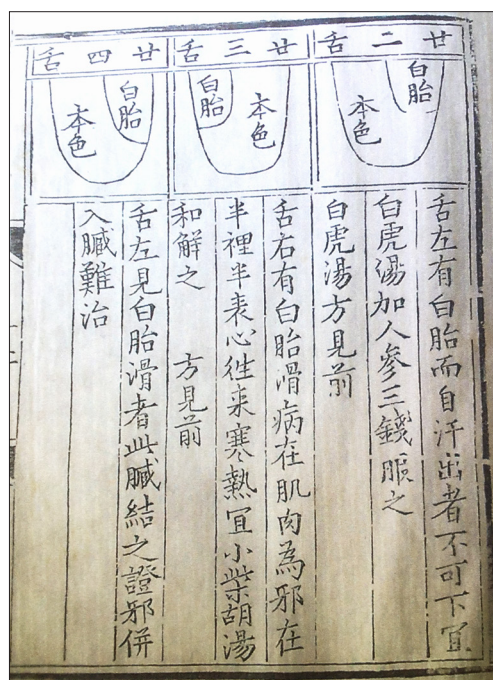 廿二舌
白胎
本色
舌左有白胎而自汗出者不可下宜
白虎湯加人參三錢服之
白虎湯方見前
廿三舌
本色
白胎
舌右有白胎滑病在肌肉為邪在
半裡半表必徃来寒熱宜小柴胡湯
和解之　方見前
廿四舌
白胎
本色
舌左見白胎滑者此臟結之證邪併
入臟難治